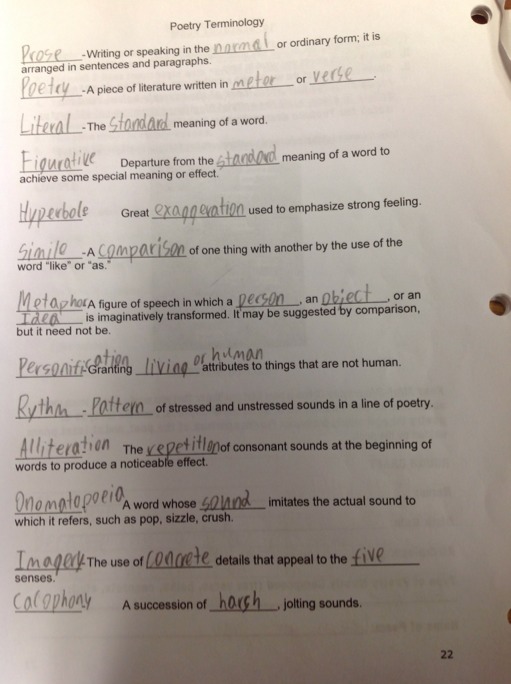 Poetry Terminology
Prose - Writing or speaking in the normal or ordinary form; it is
arranged in sentences and paragraphs.
Poetry - A piece of literature written in meter or verse.
Literal - The Standard meaning of a word.
Figurative Departure from the standard meaning of a word to
achieve some special meaning or effect.
Hyperbole Great exaggeration used to emphasize strong feeling.
Simile - A comparison of one thing with another by the use of the
word "like" or "as."
Metaphor A figure of speech in which a person, an object, or an
Idea is imaginatively transformed. It may be suggested by comparison,
but it need not be.
Personification - Granting living or human attributes to things that are not human.
Rythm - Pattern of stressed and unstressed sounds in a line of poetry.
Alliteration The repetition of consonant sounds at the beginning of
words to produce a noticeable effect.
Onomatopoeia A word whose sound imitates the actual sound to
which it refers, such as pop, sizzle, crush.
Imagery - The use of concrete details that appeal to the five
senses.
Cacophony A succession of harsh, jolting sounds.
22